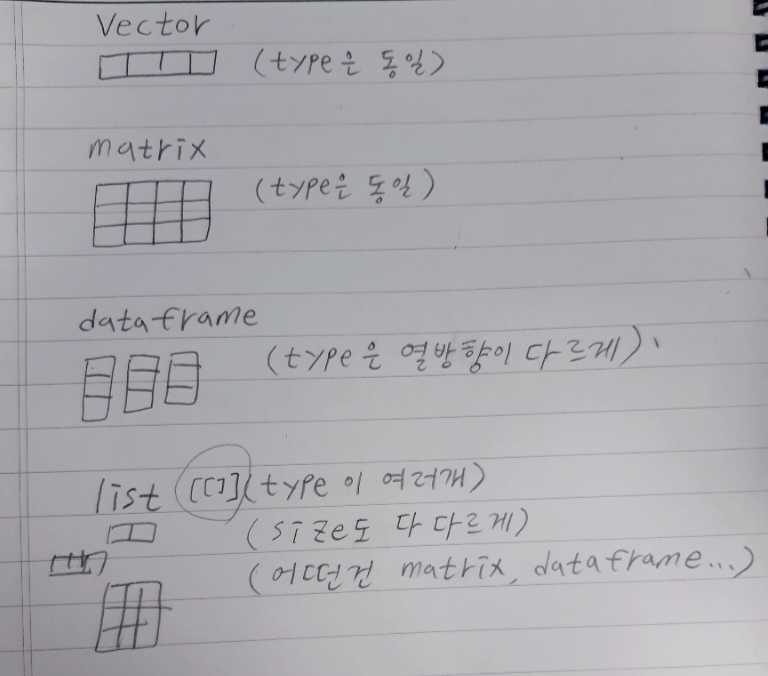 Vector
(type은 동일)
matrix
(type은 동일)
dataframe
(type은 열방향이 다르게)
list [[]] (type이 여러개)
(size도 다 다르게)
(어떤건 matrix, dataframe...)